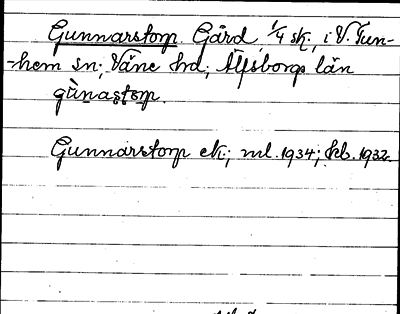 Gunnarstorp Gård, 1/4 sk., i V. Tun-
-hem sn; Väne hd; Älfsborgs län
gùnastǫrp.
Gunnarstorp ek.; ml. 1934; kb. 1932